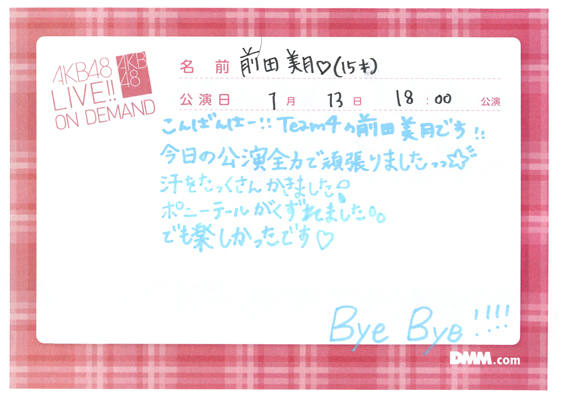 AKB48
LIVE!!
ON DEMAND
AKB
48
名 前 前田 美月♡(15才)
公演日 1月 13日 18:00 公演
こんばんはー!! Team4の前田美月です!!
今日の公演全力で頑張りましたっっ☆彡
汗をたっくさんかきました
ポニーテールがくずれてました
でも楽しかったです♡
Bye Bye!!!!
DMM.com